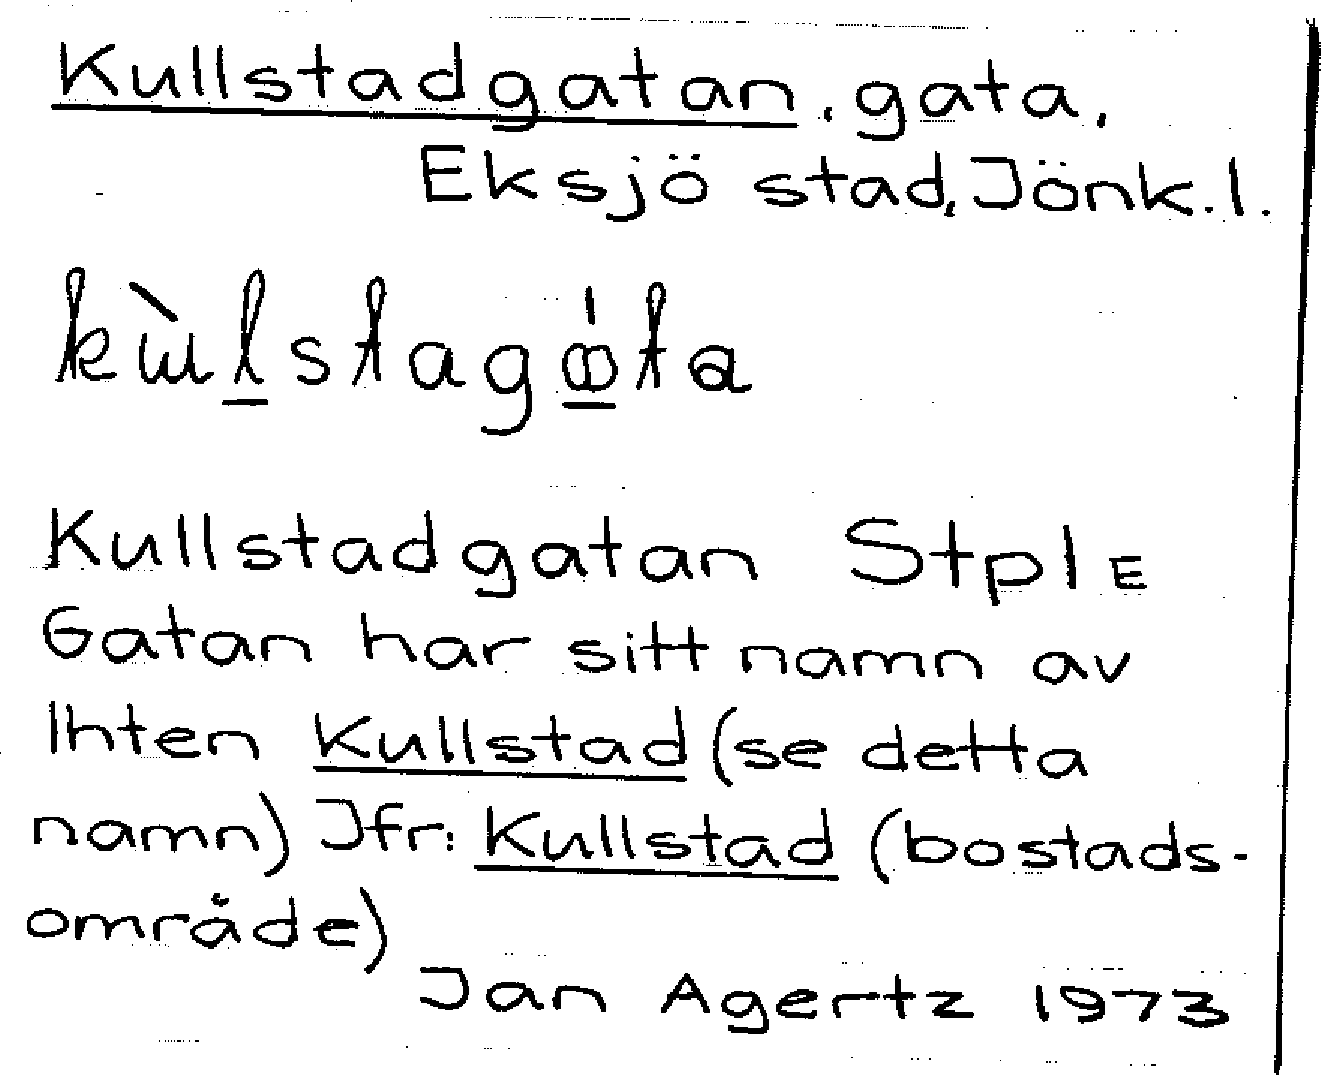 Kullstadgatan, gata,
Eksjö stad, Jönk. l.
Kullstadgatan Stpl E
Gatan har sitt namn av
lhten Kullstad (se detta
namn) Jfr: Kullstad (bostads-
område)
Jan Agertz 1973